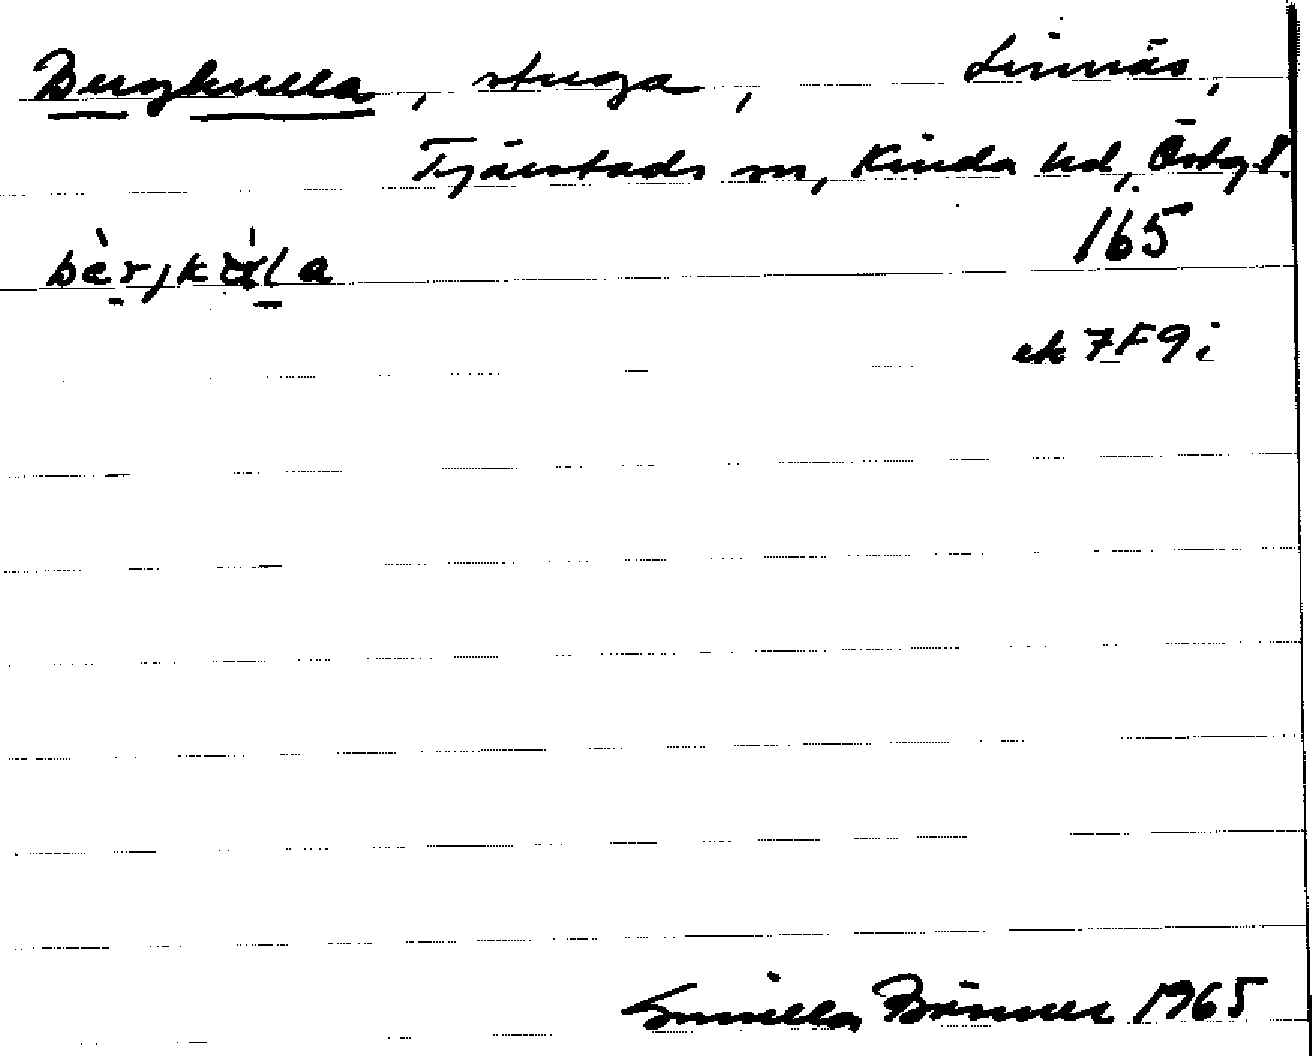 Bergkulla, stuga, Linnäs,
Tjärstads sn, Kinda hd, Östg.
165
bàrjkála
ek 7F9i
Gunilla Bränner 1965